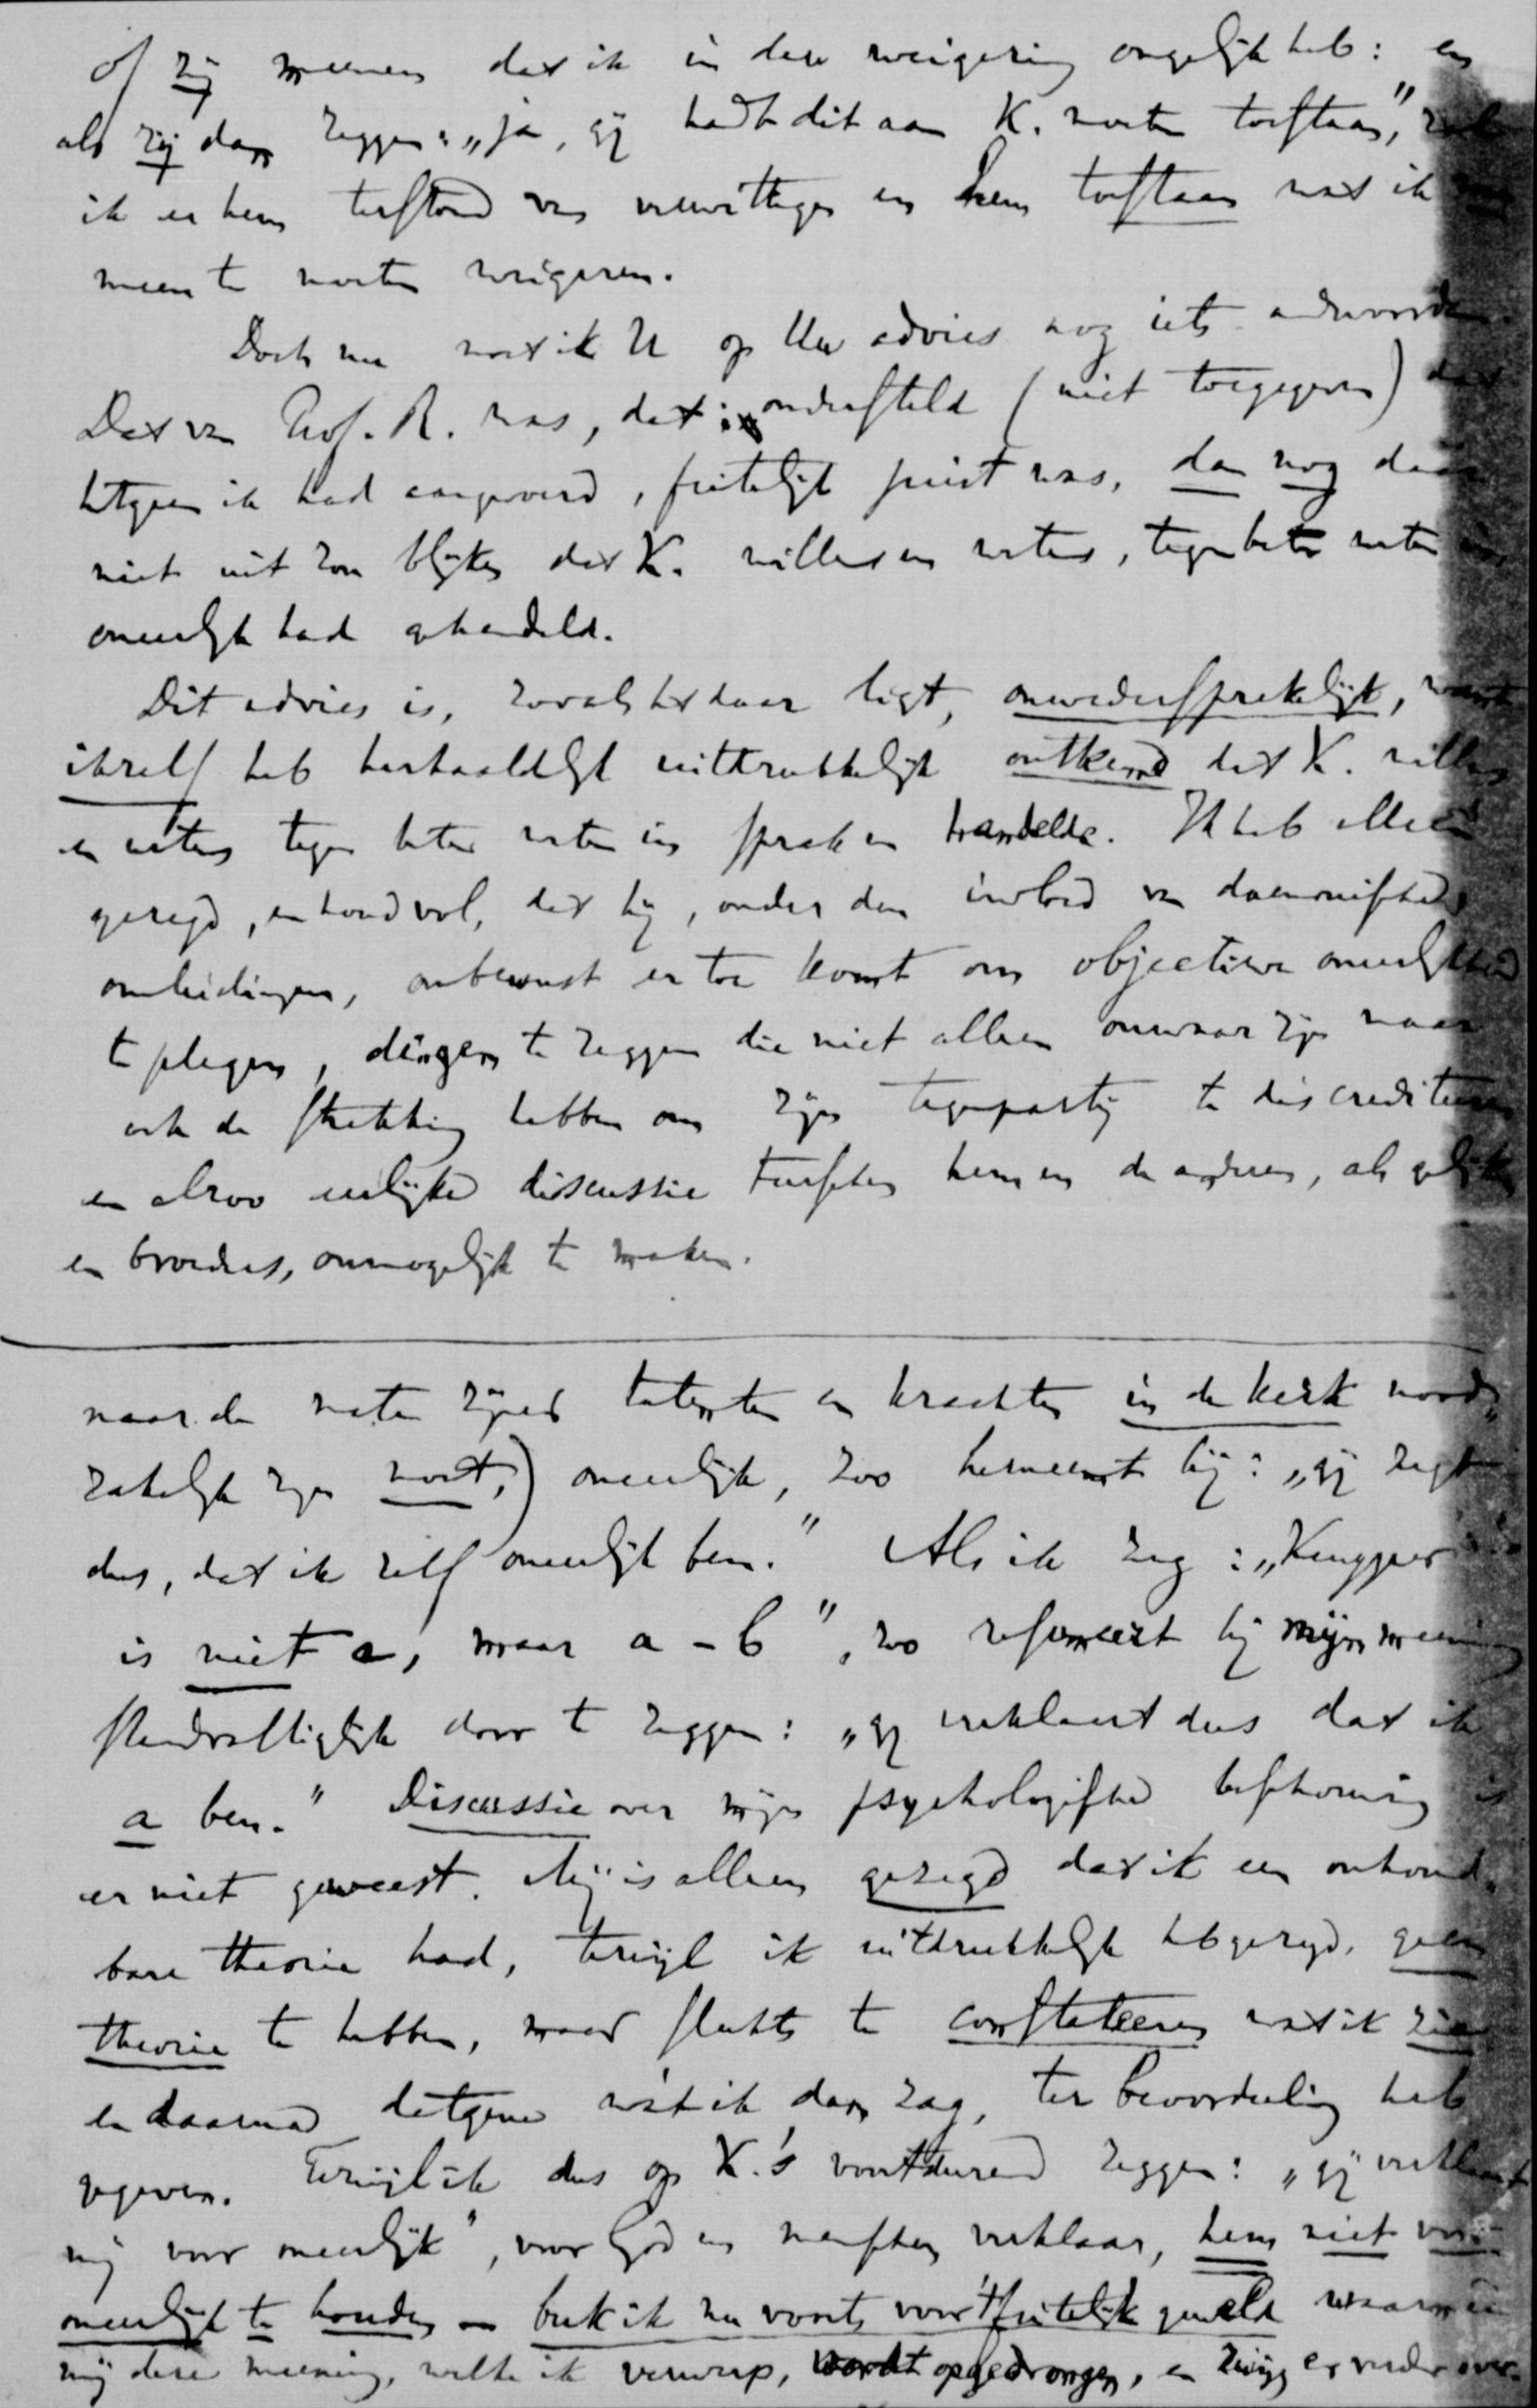 of zij meenen dat ik in deze weigering ongelijk heb: en
als zij dan zeggen: „ja, gij hadt dit aan K. moeten toestaan," zal
ik er hem terstond van verwittigen en hem toestaan wat ik
meen te moeten weigeren.
Doch nu moet ik U op Uw advies nog iets antwoorden.
Dat van Prof. R. was, dat ondersteld (niet toegegeven) dat
hetgeen ik had aangevoerd, feitelijk juist was, dan nog daar
niet uit zou blijken dat K. willens en wetens, tegen beter weten in,
oneerlijk had gehandeld.
Dit advies is, zooals het daar ligt, onwedersprekelijk, want
ikzelf heb herhaaldelijk uitdrukkelijk ontkend dat K. willens
en wetens tegen beter weten in sprak en handelde. Ik heb alleen
gezegd, en houd vol, dat hij, onder den invloed van daemonische
omleidingen, onbewust er toe komt om objectieve oneerlijkheid
te plegen, dingen te zeggen die niet alleen onwaar zijn maar
ook de strekking hebben om zijn tegenpartij te discrediteeren
en alzoo eerlijke discussie tusschen hem en de anderen, als gelijken
en broeders, onmogelijk te maken.
naar de mate zijner talenten en krachten in de kerk nood„
zakelijk zijn moet,) oneerlijk, zoo herneemt hij: „gij zegt
dus, dat ik zelf oneerlijk ben." Als ik zeg: „Kuyper
is niet a, maar a - b", zoo resumeert hij mijn meening
standvastiglijk door te zeggen: „gij verklaart dus dat ik
a ben." Discussie over mijn psychologische beschouwing is
er niet geweest. Mij is alleen gezegd dat ik een onhoud„
bare theorie had, terwijl ik uitdrukkelijk heb gezegd, geen
theorie te hebben, maar slechts te constateeren wat ik zie
en daarna datgene wat ik dan zag, ter beoordeeling heb
gegeven. Terwijl ik dus op K.'s voortdurend zeggen: „gij verklaart
mij voor oneerlijk", voor God en menschen verklaar, hem niet voor
oneerlijk te houden — buk ik nu voorts voor 't feitelijk geweld waarmee
mij deze meening, welke ik verwerp, wordt opgedrongen, en zwijg er verder over.